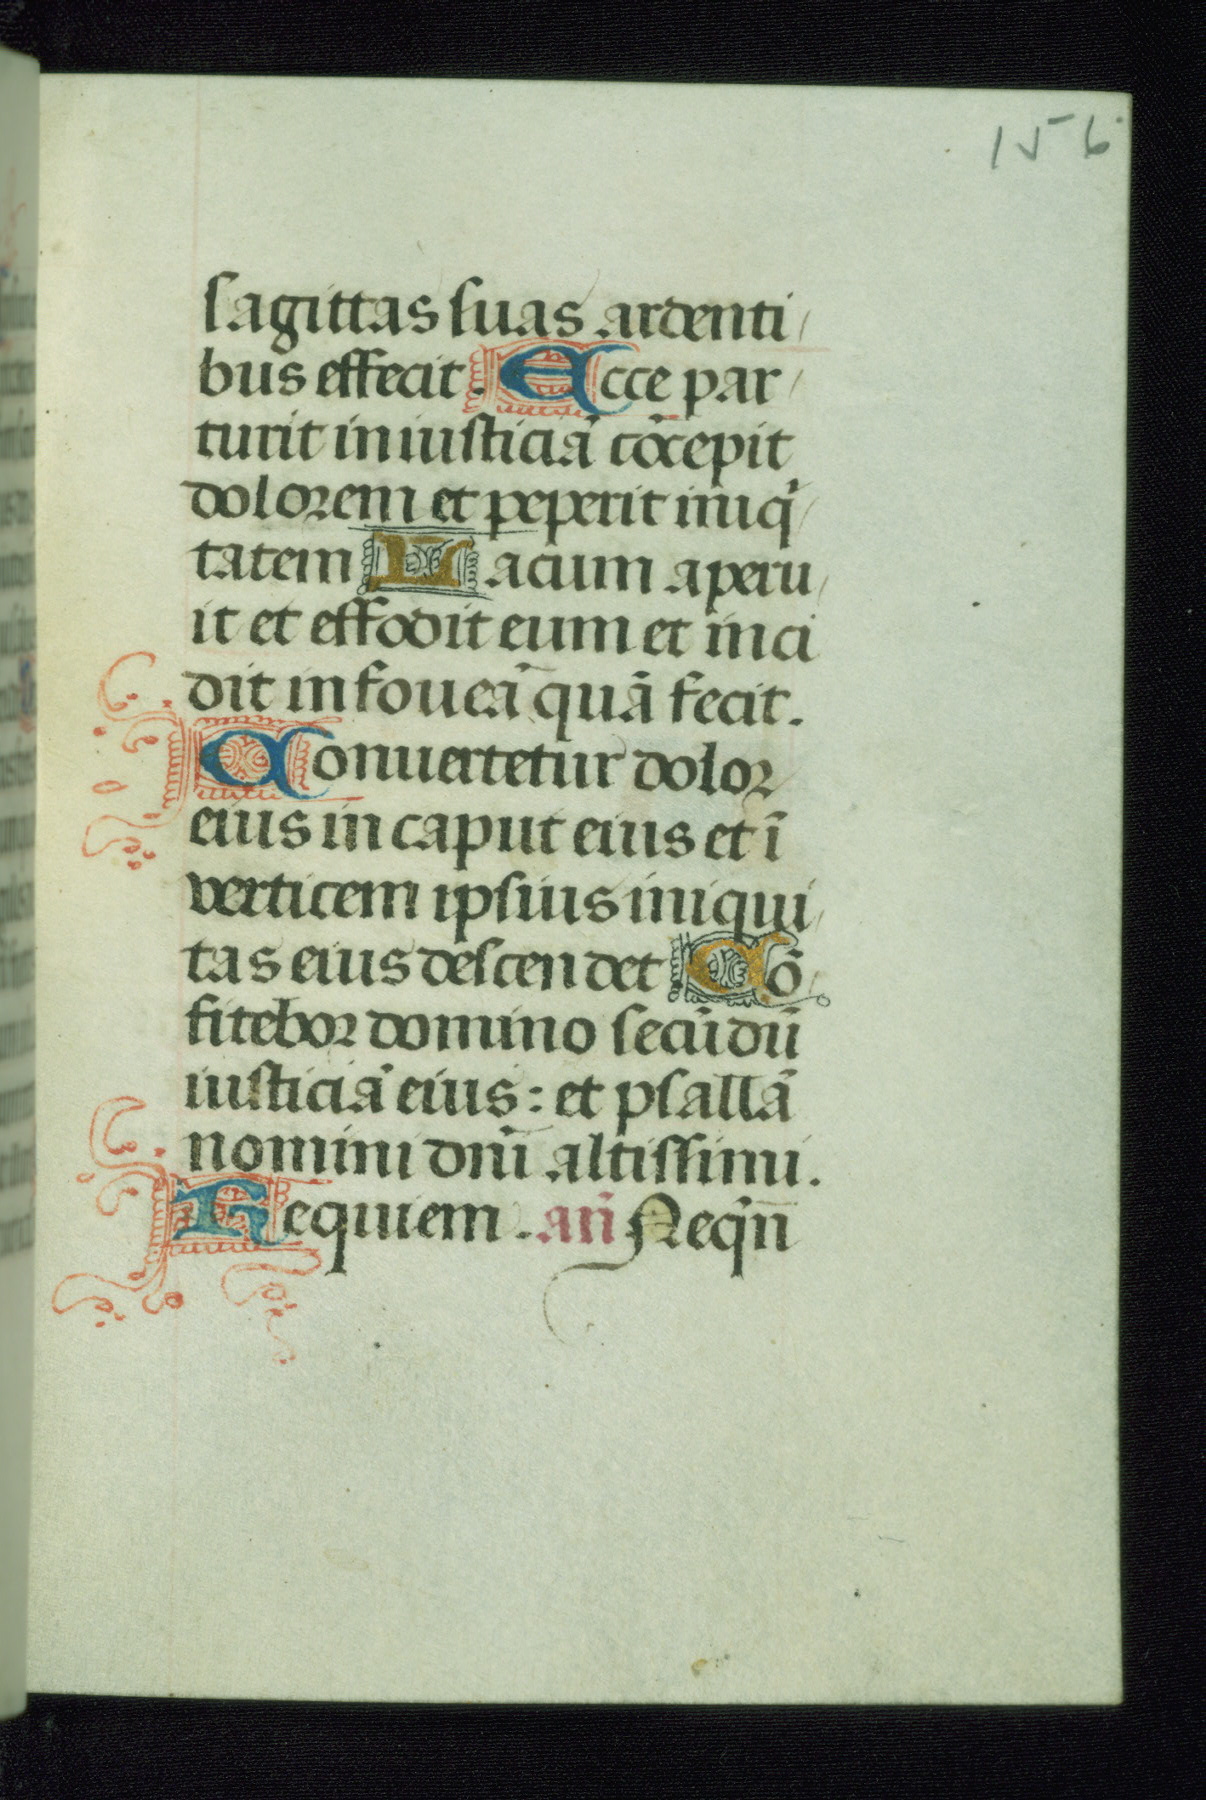 156
sagittas suas ardenti
bus effecit. Ecce par
turit iniusticiã cõcepit
dolorem et peperit iniqͥ
tatem Lacum aperu
it et effodit eum et inci
dit in foueã quã fecit.
Conuertetur dolor
eius in caput eius et ĩ
verticem ipsius iniqui
tas eius descendet Cõ
fitebor domino secũdũ
iusticiã eius : et psallã
nomini dñi altissimi.
Requiem . añ Neqͥñ